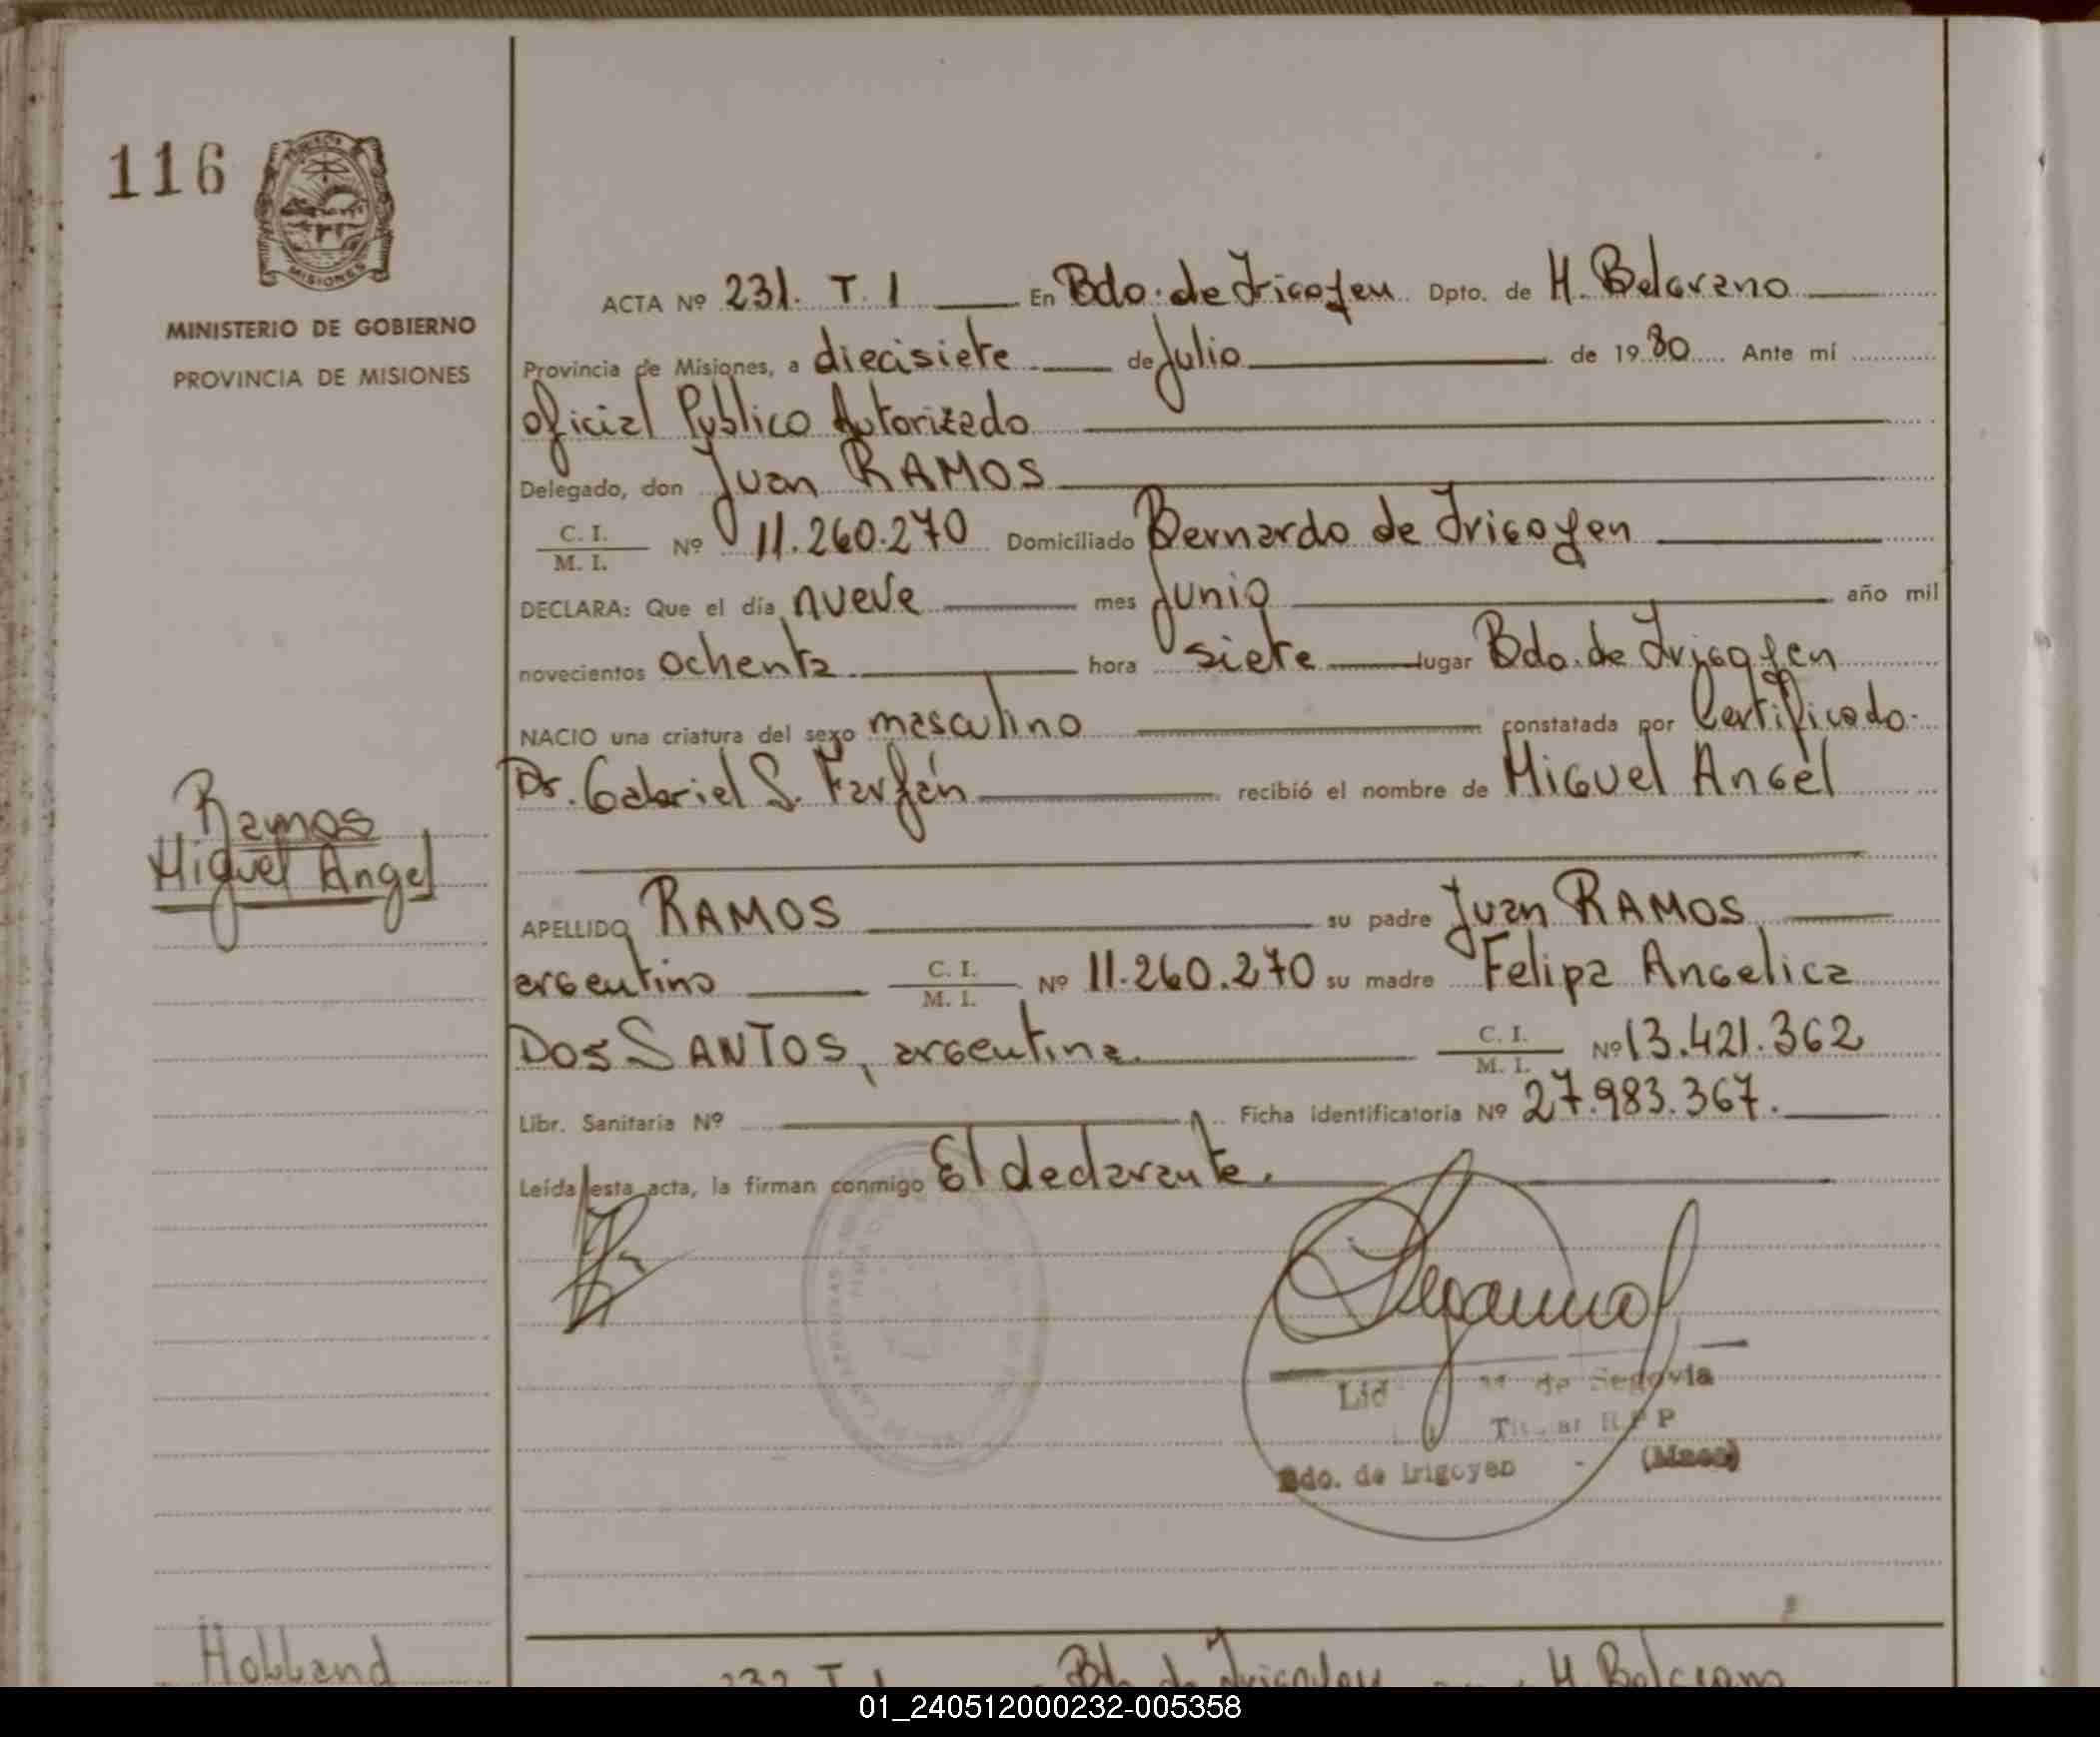 116
MISIONES
MINISTERIO DE GOBIERNO
PROVINCIA DE MISIONES
ACTA Nº 231. T. 1 En Bdo. de Irigoyen Dpto. de H. Belgrano
Provincia de Misiones, a diecisiete de Julio de 1980 Ante mí
oficial Publico Autorizado
Delegado, don Juan RAMOS
C. I.
M. I. Nº 11.260.270 Domiciliado Bernardo de Irigoyen
DECLARA: Que el día nueve mes Junio año mil
novecientos ochenta hora siete lugar Bdo. de Irigoyen
NACIO una criatura del sexo masculino constatada por Certificado.
Dr. Gabriel S. Farfán recibió el nombre de Miguel Angel
Ramos
Miguel Angel
APELLIDO RAMOS su padre Juan RAMOS
argentino C. I.
M. I. Nº 11.260.270 su madre Felipa Angelica
DOS SANTOS, argentina. C. I.
M. I. Nº 13.421.362
Libr. Sanitaria Nº Ficha identificatoria Nº 27.983.367.
Leída esta acta, la firman conmigo El declarante.
Lid M. de Segovia
Titular R P P
Bdo. de Irigoyen - (Mnes)
232 T. 1 Bdo de Irigoyen H. Belgrano
01_240512000232-005358